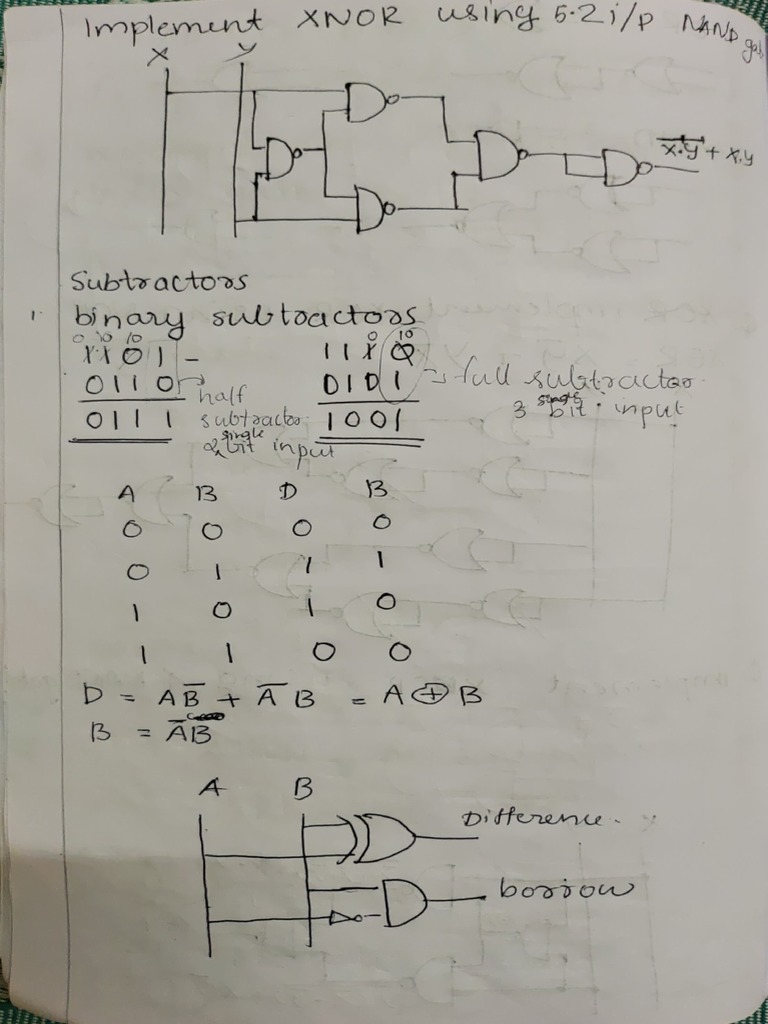 Implement XNOR using 5.2 i/p NAND gate
X Y
X̅.Y̅ + X.Y
Subtractors
1. binary subtractors
0 10 10
1101 -
0110 → half subtractor
0111 2 single bit input
0 10
1110
0101 → full subtractor
1001 3 single bit input
A B D B
0 0 0 0
0 1 1 1
1 0 1 0
1 1 0 0
D = AB̅ + A̅B = A ⊕ B
B = A̅B
A B
Difference.
borrow